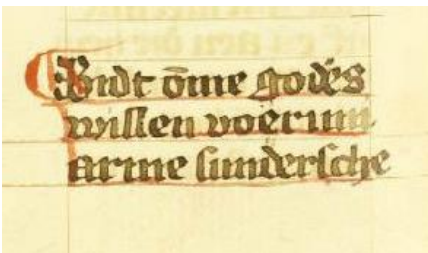 Bidt om̄e godes
willen voer um
arme sundersche